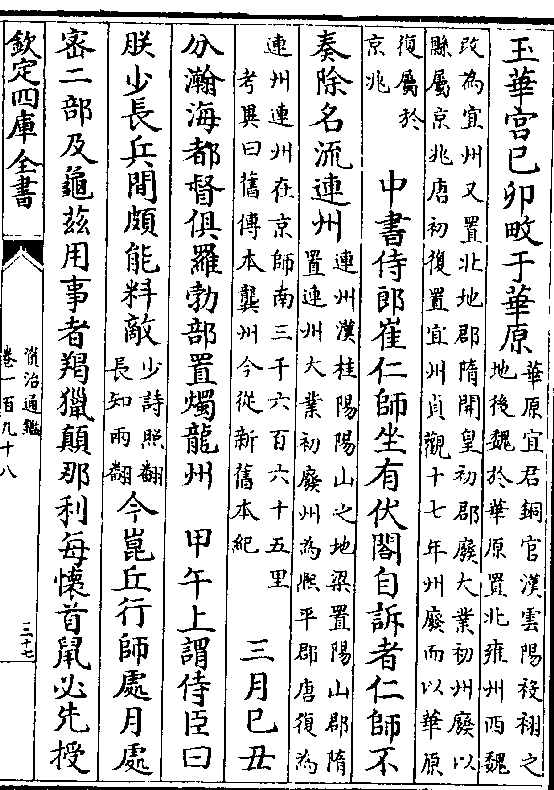 玉華宮己卯畋于華原華原宜君銅官漢雲陽祋祤之
地後魏於華原置北雍州西魏
改為宜州又置北地郡隋開皇初郡廢大業初州廢以
縣屬京兆唐初復置宜州貞觀十七年州廢而以華原
復屬於
京兆　中書侍郎崔仁師坐有伏閤自訴者仁師不
奏除名流連州連州漢桂陽陽山之地梁置陽山郡隋
置連州大業初廢州為熙平郡唐復為
連州連州在京師南三千六百六十五里
考異曰舊傳本龔州今從新舊本紀　三月己丑
分瀚海都督俱羅勃部置燭龍州　甲午上謂侍臣曰
朕少長兵間頗能料敵少詩照翻
長知兩翻今崑丘行師處月處
密二部及龜茲用事者羯獵顛那利每懷首鼠必先授
欽定四庫全書
資治通鑑
卷一百九十八
三十七